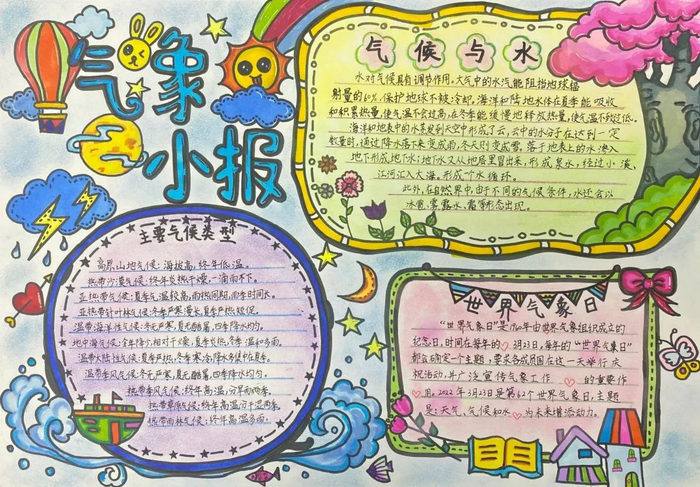 气象
小报
气候与水
水对气候具有调节作用。大气中的水汽能阻挡地球辐
射量的60%,保护地球不被冷却。海洋和陆地水体在夏季能吸收
和积累热量,使气温不会过高;在冬季能缓慢地释放热量,使气温不会过低。
海洋和地表中的水蒸发到天空中形成了云,云中的水分子在达到一定
数量时,通过降水落下来变成雨,冬天则变成雪。落于地表上的水渗入
地下形成地下水;地下水又从地层里冒出来,形成泉水,经过小溪、
江河汇入大海。形成个水循环。
此外,在自然界中,由于不同的气候条件,水还会以
冰雹、雾、露水、霜等形态出现。
主要气候类型
高原山地气候:海拔高,终年低温。
热带沙漠气候:终年炎热干燥,一滴雨不下。
亚热带气候:夏季气温较高,雨热同期,雨季时间长。
亚热带针叶林气候:冬季严寒漫长,夏季严热短促。
温带海洋性气候:冬无严寒,夏无酷暑,四季降水均匀。
地中海气候:夏季炎热干燥,冬季温和多雨。
温带大陆性气候:夏季炎热,冬季寒冷,降水集中在夏季。
温带季风气候:冬无严寒,夏无酷暑,四季降水均匀。
热带季风气候:终年高温,分旱雨两季。
热带草原气候:终年高温,分干湿两季。
热带雨林气候:终年高温多雨。
世界气象日
“世界气象日”是1960年由世界气象组织成立的
纪念日,时间在每年的3月23日,每年的“世界气象日”
都会确定一个主题,要求各成员国在这一天举行庆
祝活动,并广泛宣传气象工作的重要作
用。2022年3月23日是第62个世界气象日,主题
是:天气、气候和水为未来增添动力。